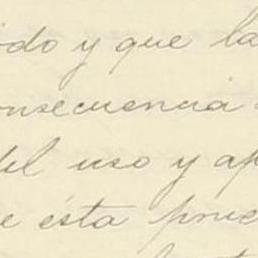 ido y que la
onsecuencia
del uso y ap
e ésta prue